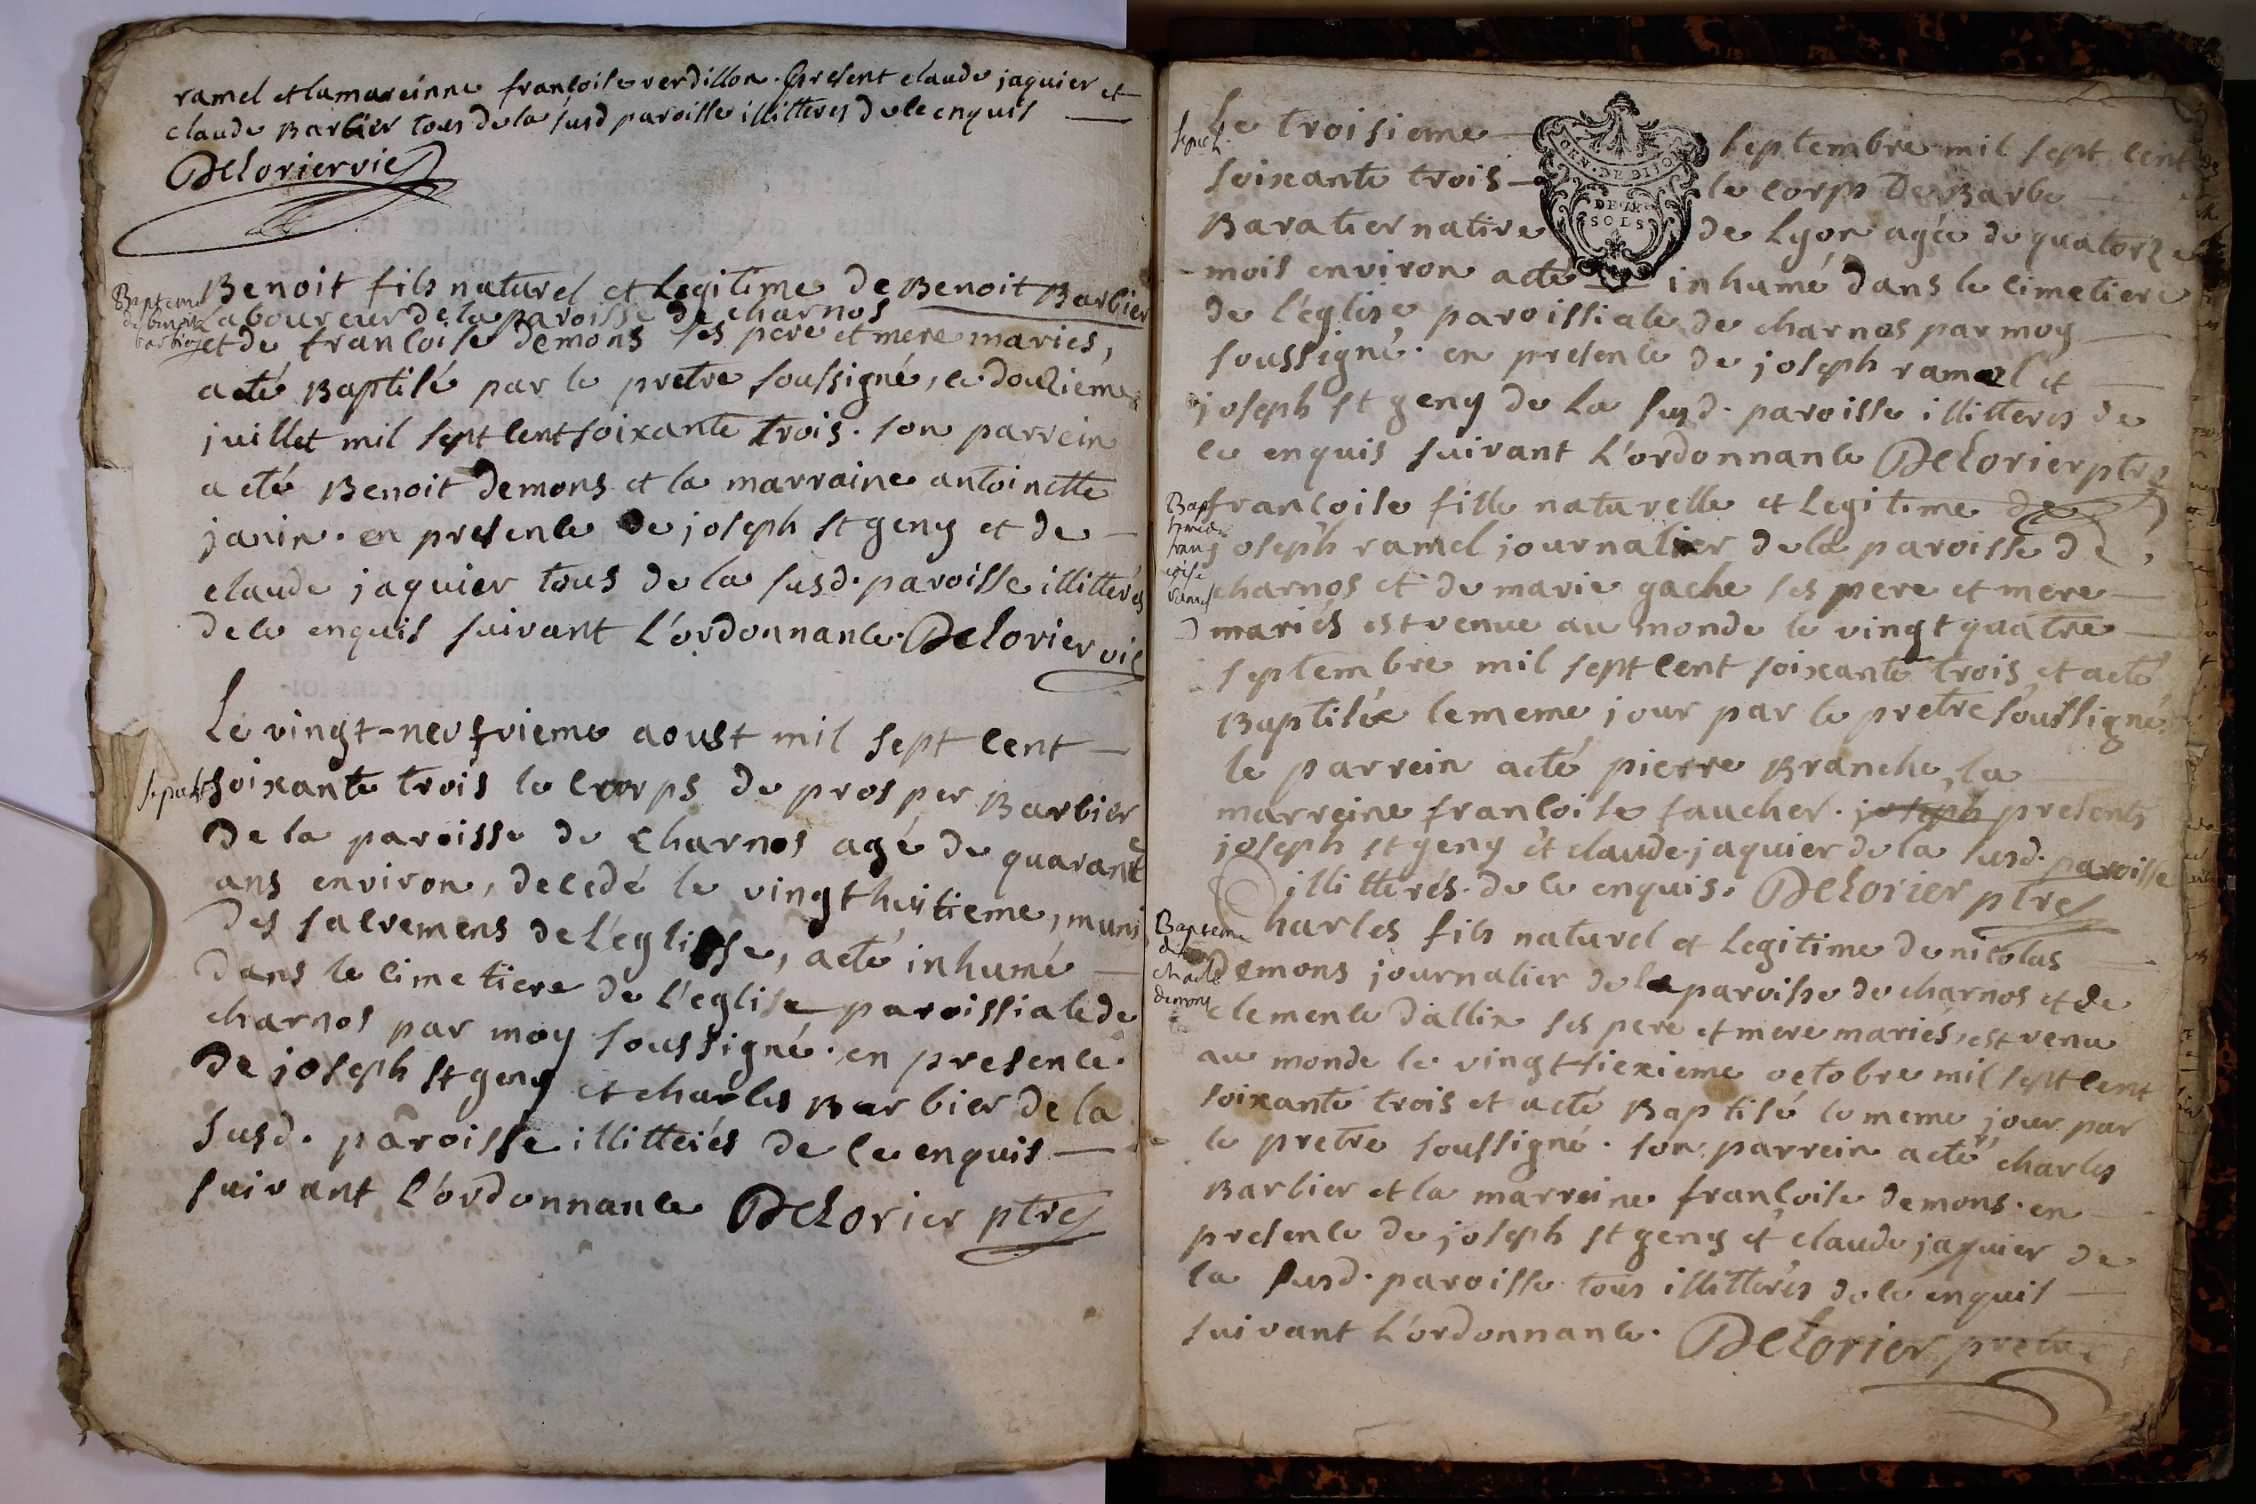 ramel et la mareinne françoise verdillon. present claude jaquier et
claude Barbier tous de la susd paroisse illitteres de ce enquis
Delorier vic
Bapteme
de benoit
barbier
Benoit fils naturel et Legitime de Benoit Barbier
Laboureur de la paroisse de charnos
et de françoise demons ses pere et mere mariés,
a eté Baptisé par le pretre soussigné, le douzieme
juillet mil sept cent soixante trois. son parrein
a eté Benoit demons et la marraine antoinette
janin. en presence de joseph st geny et de
claude jaquier tous de la susd. paroisse illitterés
de ce enquis suivant L'ordonnance. Delorier vic
Le vingt-neufvieme aoust mil sept cent
sepult
soixante trois le corps de prosper Barbier
De la paroisse de charnos agé de quarante
ans environ, decedé le vingt huitieme, muni
Des sacremens de L'eglisse, a eté inhumé
Dans le cimetiere de L'eglise paroissiale de
charnos par moy soussigné. en presence.
De joseph st geny et charles Barbier de la
susd. paroisse illitterés de ce enquis
suivant L'ordonnance Delorier ptre
sepult
Le troisieme septembre mil sept cent
GEN. DE DIJON
DEUX
SOLS
soixante trois le corps De Barbe
Baratier native de Lyon agée de quatorze
mois environ a eté inhumé dans le cimetiere
de l'église paroissiale de charnos par moy
soussigné. en presence de joseph ramel et
joseph st geny de La susd. paroisse illitteres de
ce enquis suivant L'ordonnance Delorier ptre
Bap
teme de
franç
oise
ramel
françoise fille naturelle et Legitime de
joseph ramel journalier de la paroisse de
charnos et de marie gache ses pere et mere
mariés est venue au monde le vingt quatre
septembre mil sept cent soixante trois et a eté
Baptisée le meme jour par le pretre soussigné.
le parrein a eté pierre Branche, la
marreine françoise faucher. joseph presents
joseph st geny et claude jaquier de la susd. paroisse
illitterés. de ce enquis. Delorier ptre
Bapteme
de
charle
demons
Charles fils naturel et Legitime de nicolas
demons journalier de la paroisse de charnos et de
clemence dallin ses pere et mere mariés, est venu
au monde le vingt sixieme octobre mil sept cent
soixante trois et a eté Baptisé le meme jour par
le pretre soussigné. son parrein a eté charles
Barbier et la marreine françoise demons. en
presence de joseph st geny et claude jaquier de
la susd. paroisse tous illitterés de ce enquis
suivant L'ordonnance. Delorier pretre